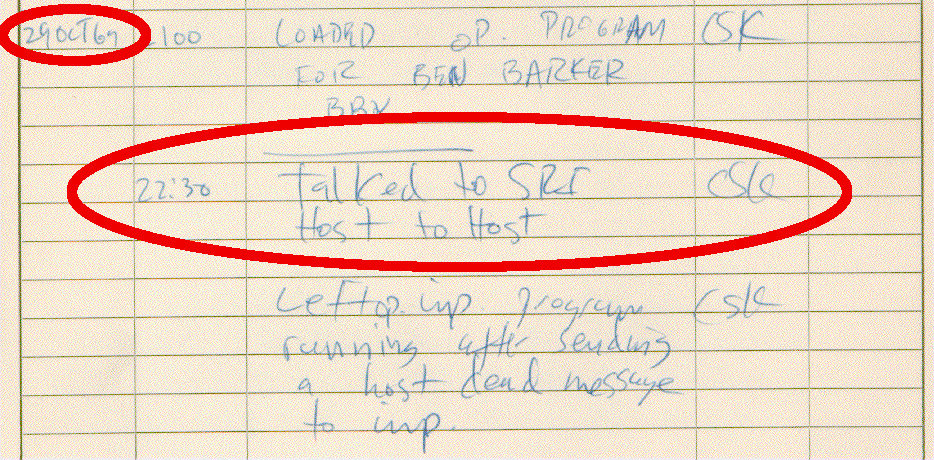 29 OCT 69 2100 LOADED OP. PROGRAM CSK
FOR BEN BARKER
BBN
22:30 Talked to SRI CSK
Host to Host
Left op. imp program CSK
running after sending
a host dead message
to imp.